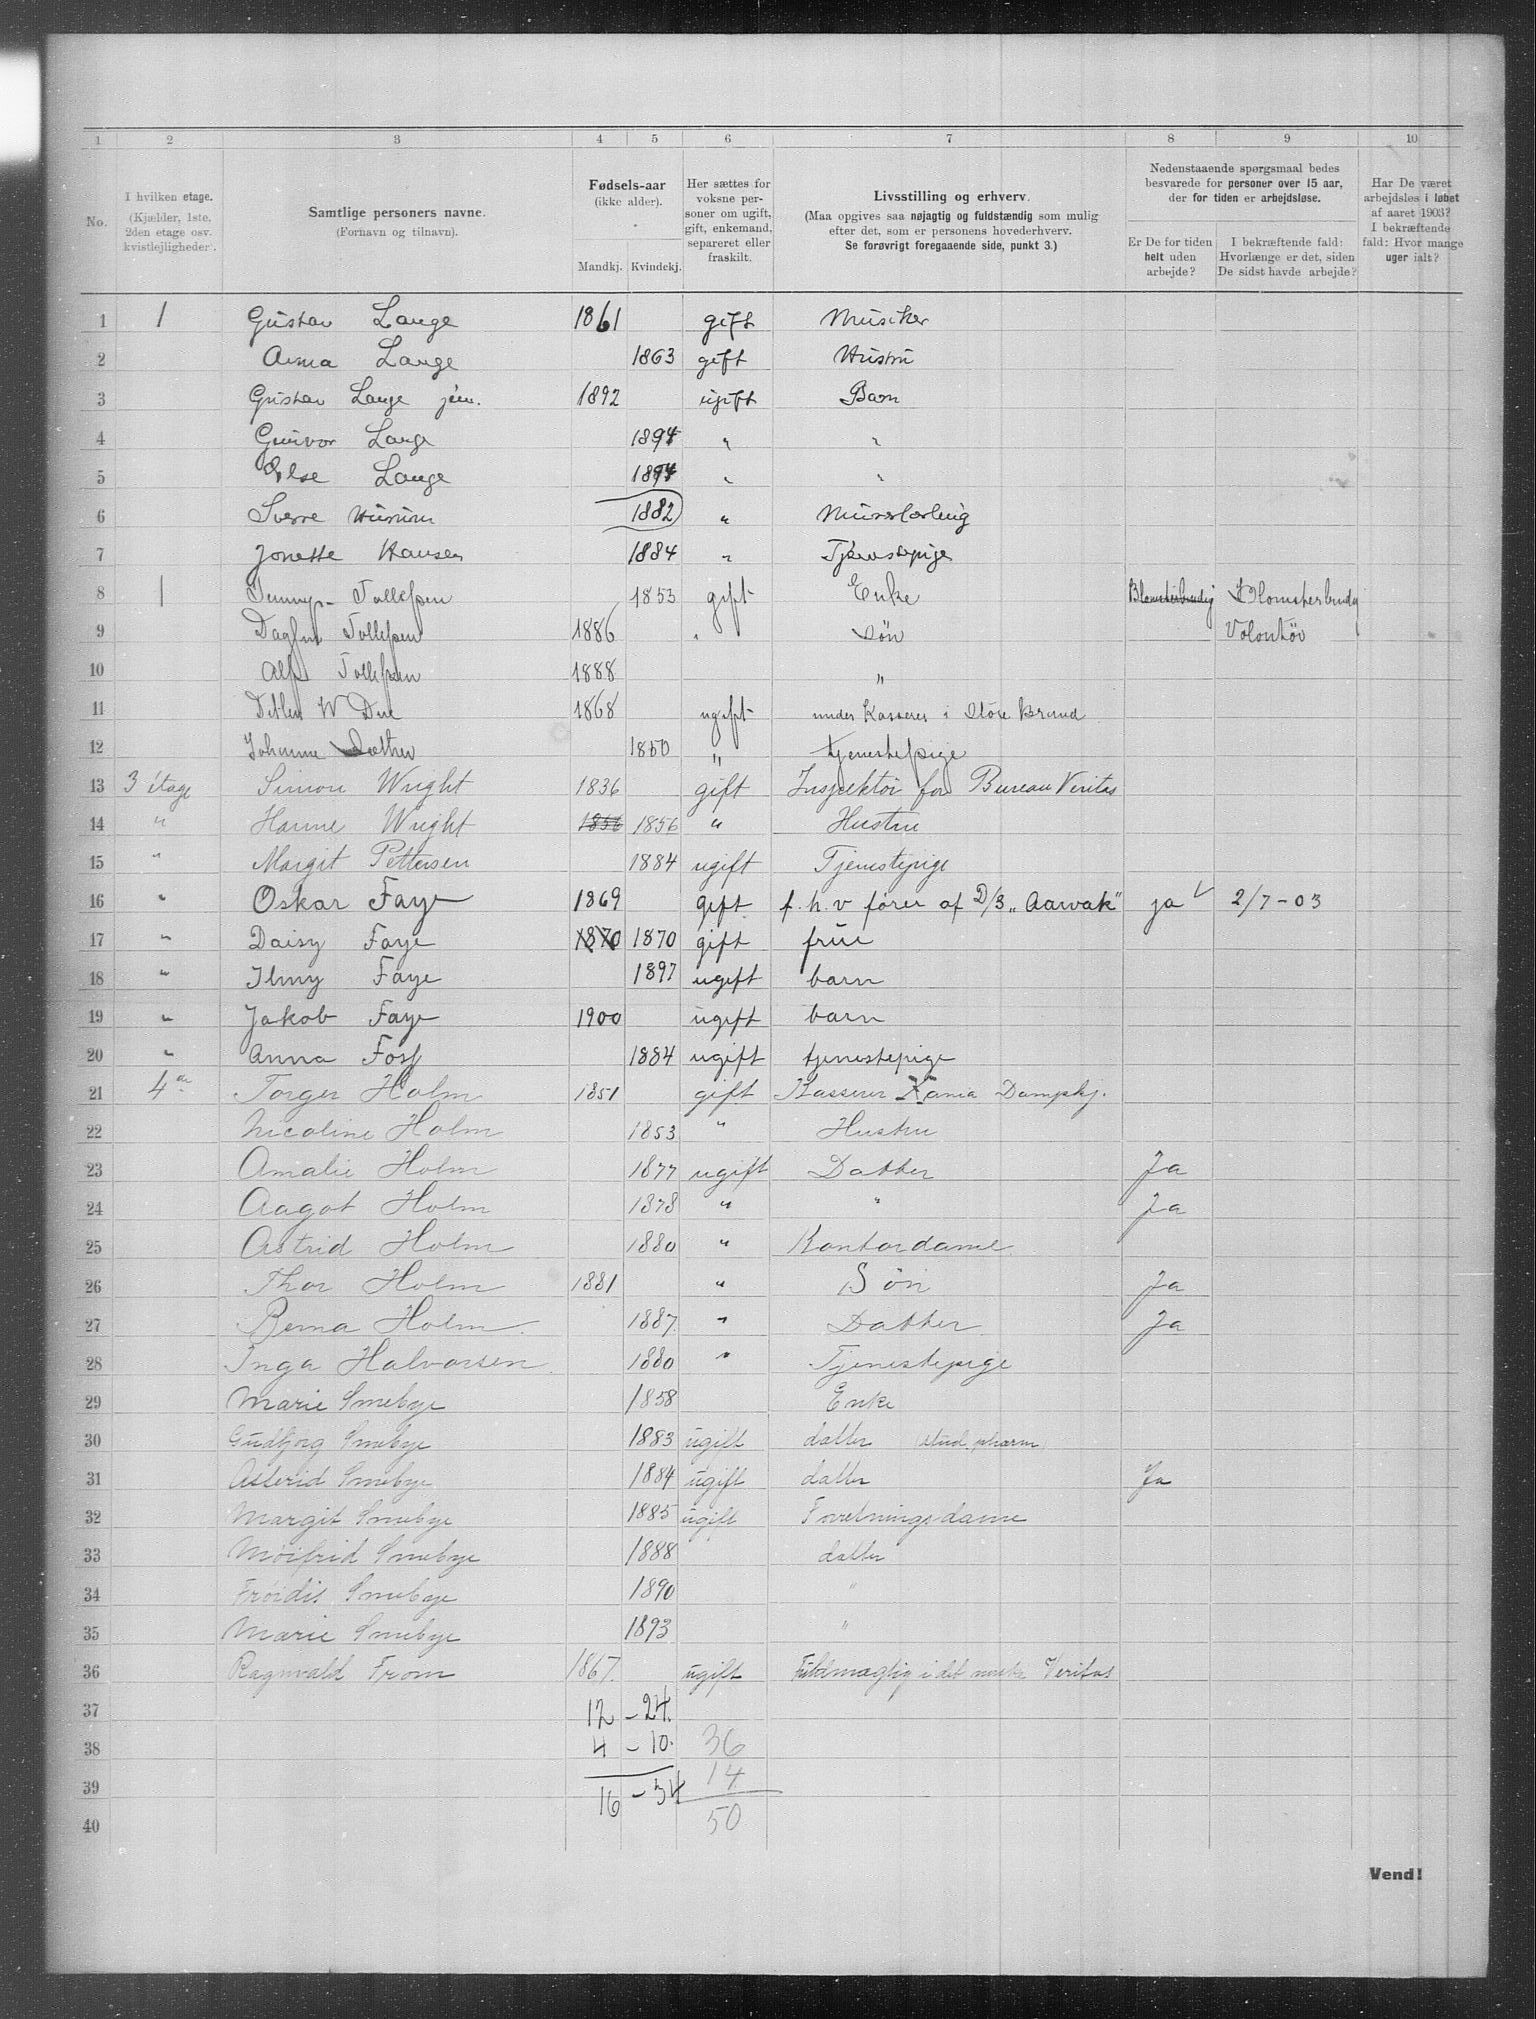 1 2 3 4 5 6 7 8 9 10
No.
I hvilken etage.
(Kjælder, 1ste, 2den etage osv. kvistlejligheder).
Samtlige personers navne.
(Fornavn og tilnavn).
Fødsels-aar
(ikke alder).
Mandkj. Kvindekj.
Her sættes for voksne personer om ugift, gift, enkemand, separeret eller fraskilt.
Livsstilling og erhverv.
(Maa opgives saa nøjagtig og fuldstændig som mulig
efter det, som er personens hovederhverv.
Se forøvrigt foregaaende side, punkt 3.)
Nedenstaaende spørgsmaal bedes
besvarede for personer over 15 aar,
der for tiden er arbejdsløse.
Er De for tiden helt uden arbejde?
I bekræftende fald: Hvorlænge er det, siden De sidst havde arbejde?
Har De været arbejdsløs i løbet af aaret 1903? I bekræftende fald: Hvor mange uger ialt?
1 1 Gustav Lange 1861 gift Musiker
2 Anna Lange 1863 gift Hustru
3 Gustav Lange jun. 1892 ugift Barn
4 Gunvor Lange 1894 " "
5 Else Lange 1894 " "
6 Sverre Husum 1882 " Murerlærling
7 Jonette Hansen 1884 " Tjenstepige
8 1 Jenny Tollefsen 1853 gift Enke Blomsterbindig Blomsterbindig
9 Dagfin Tollefsen 1886 " Søn Volontör
10 Alf Tollefsen 1888 "
11 Ditlev W Due 1868 ugift under Kasserer i Store Brand
12 Johanne 1850 " tjenestepige
13 3 étage Simon Wright 1836 gift Inspektör for Bureau Veritas
14 " Hanne Wright 1856 1856 " Hustru
15 " Margit Pettersen 1884 ugift Tjenestepige
16 " Oskar Faye 1869 gift f. h. v fører af D/S „Aarvak" ja 2/7-03
17 " Daisy Faye 1870 1870 gift frue
18 " Ilmy Faye 1897 ugift barn
19 " Jakob Faye 1900 ugift barn
20 " Anna Foss 1884 ugift tjenestepige
21 4de Torger Holm 1851 gift Kasserer Xania Dampskj.
22 Nicoline Holm 1853 " Hustru
23 Amalie Holm 1877 ugift Datter Ja
24 Aagot Holm 1878 " " Ja
25 Astrid Holm 1880 " Kontordame
26 Thor Holm 1881 " Søn Ja
27 Berna Holm 1887 " Datter Ja
28 Inga Halvorsen 1880 " Tjenestepige
29 Marie Smebye 1858 Enke
30 Gudbjorg Smebye 1883 ugift datter stud. pharm
31 Asterid Smebye 1884 ugift datter Ja
32 Margit Smebye 1885 ugift Forretningsdame
33 Møifrid Smebye 1888 datter
34 Frøidis Smebye 1890 "
35 Marie Smebye 1893 "
36 Ragnvald From 1867. ugift Fuldmægtig i det norske Veritas
37 12 - 24.
38 4 - 10. 36
39 16 - 34 14
40 50
Vend!